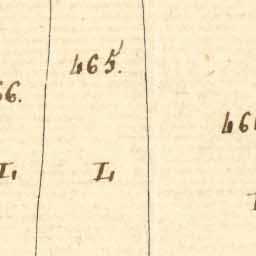 465.
66.
46
L
L